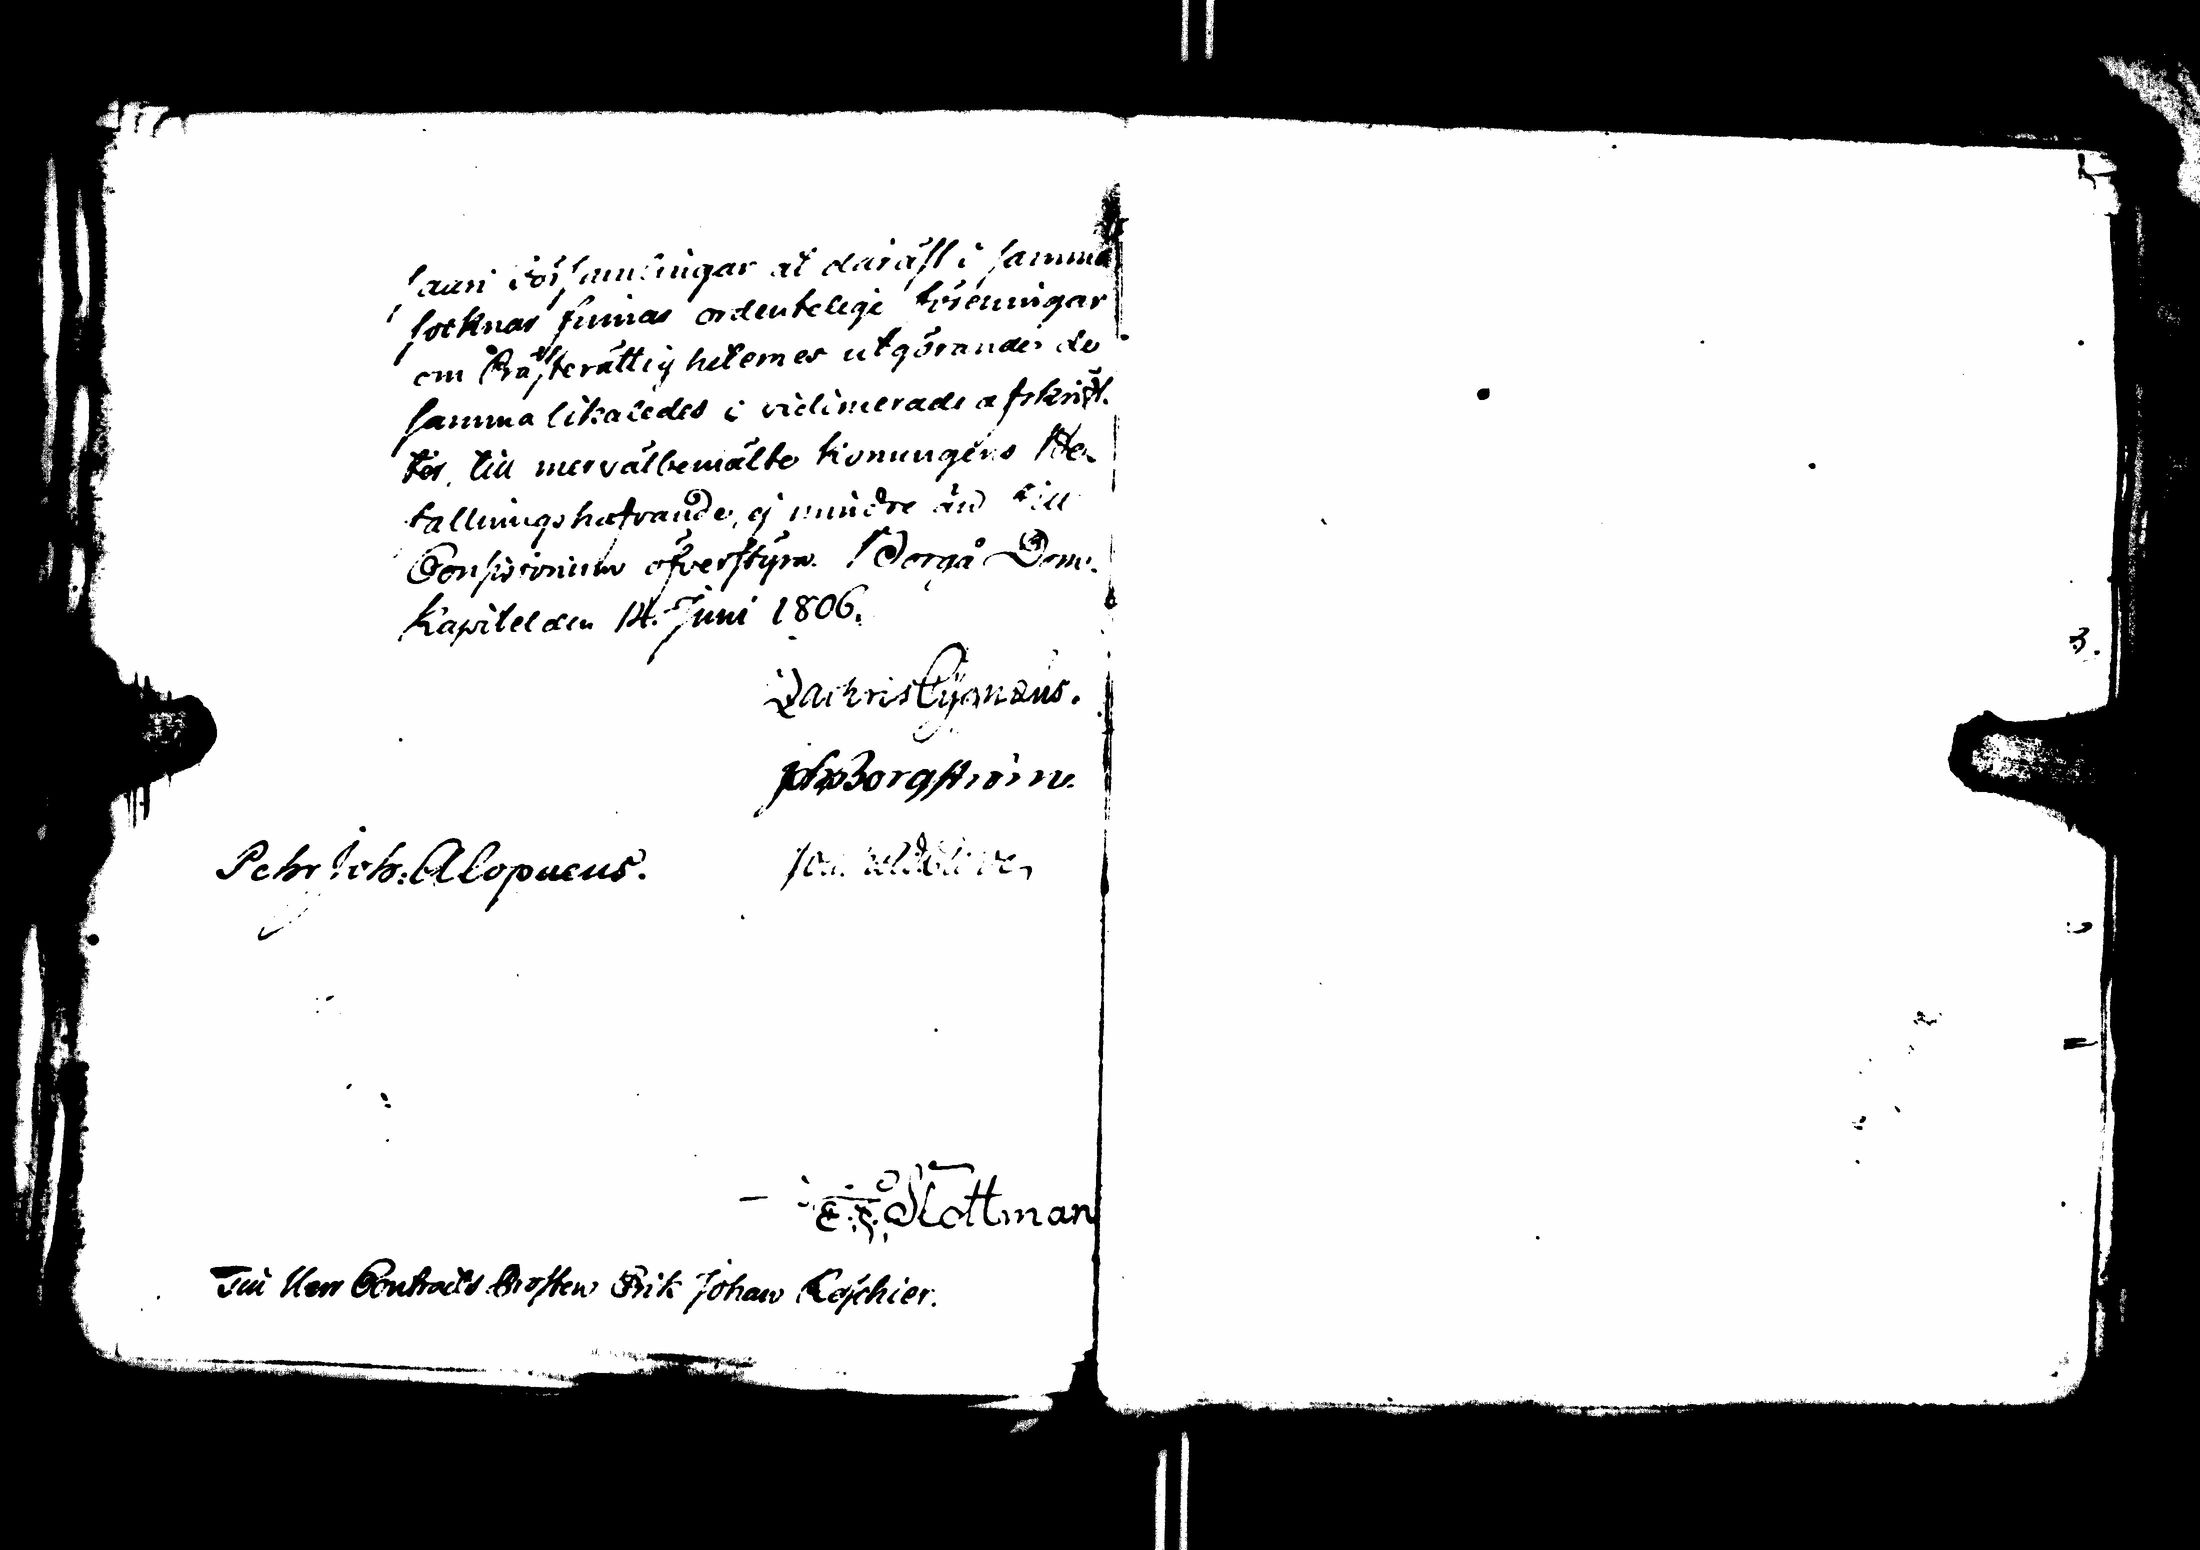 saan församlingar at däräst i samma
socknar finnas ordentelige föreningar
om Prästerättigheternes utgörande, de
samma likaledes i vidimerade afskrif-
ter, till mervälbemälte Konungens Be-
fallningshafvande, ej mindre än till
Consistorium öfverstyra. Borgå Dom-
kapitel den 14. Juni 1806.
Zachris Cygnæus.
Joh. Borgström.
Pehr Joh: Alopæus.
Slottman
Till Herr Contracts Prosten Erik Johan Koschier.